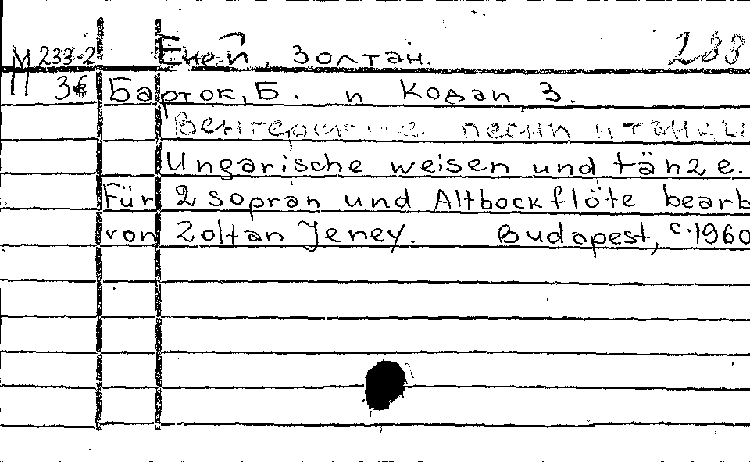 М 233-2 Еней, Золтан. 233
36 Барток, Б. и Кодаи, З.
Венгерские песни и танцы
Ungarische weisen und tänze.
Für 2 sopran und Altbockflöte bearb
von Zoltan Jeney. Budapest, c.1960